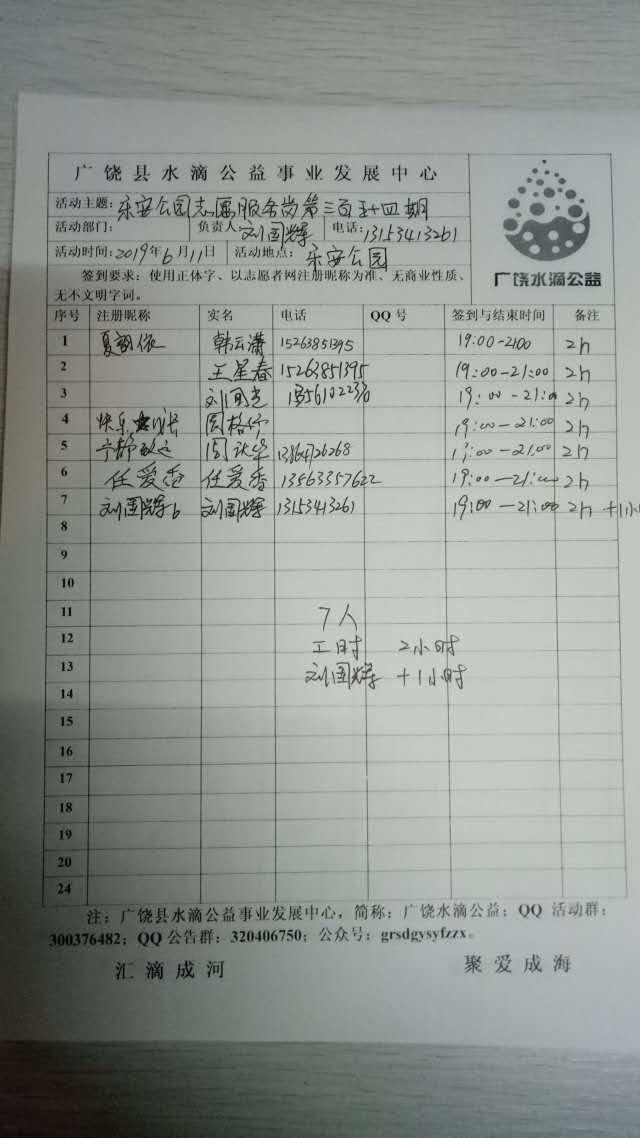 广饶县水滴公益事业发展中心
活动主题: 乐安公园志愿服务岗第三百五十四期
活动部门: 负责人: 刘国辉 电话: 13153413261
活动时间: 2019年6月11日 活动地点: 乐安公园
广饶水滴公益
签到要求：使用正体字、以志愿者网注册昵称为准、无商业性质、
无不文明字词。
序号 注册昵称 实名 电话 QQ号 签到与结束时间 备注
1 韩云潇 15263851395 19:00-2100 2h
2 王星春 15263851395 19:00-21:00 2h
3 19:00-21:00 2h
4 快乐 19:00-21:00 2h
5 宁静致远 13864726268 19:00-21:00 2h
6 任爱香 任爱香 13563357622 19:00-21:00 2h
7 刘国辉b 刘国辉 13153413261 19:00-21:00 2h +1小
8
9
10
11 7人
12 工时 2小时
13 刘国辉 +1小时
14
15
16
17
18
19
20
24
注：广饶县水滴公益事业发展中心，简称：广饶水滴公益；QQ 活动群：
300376482；QQ 公告群：320406750；公众号：grsdgysyfzzx。
汇滴成河 聚爱成海